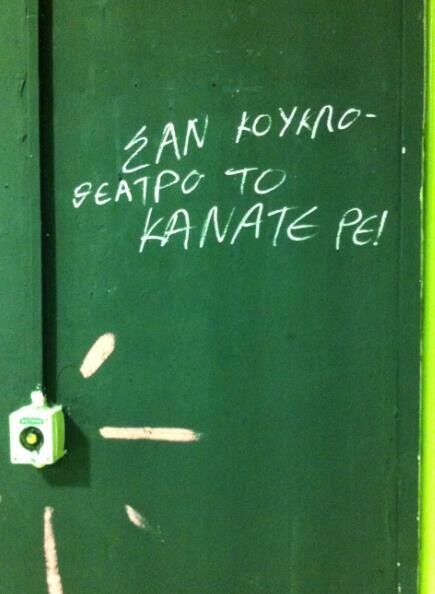 ΣΑΝ ΚΟΥΚΛΟ-
ΘΕΑΤΡΟ ΤΟ
ΚΑΝΑΤΕ ΡΕ!